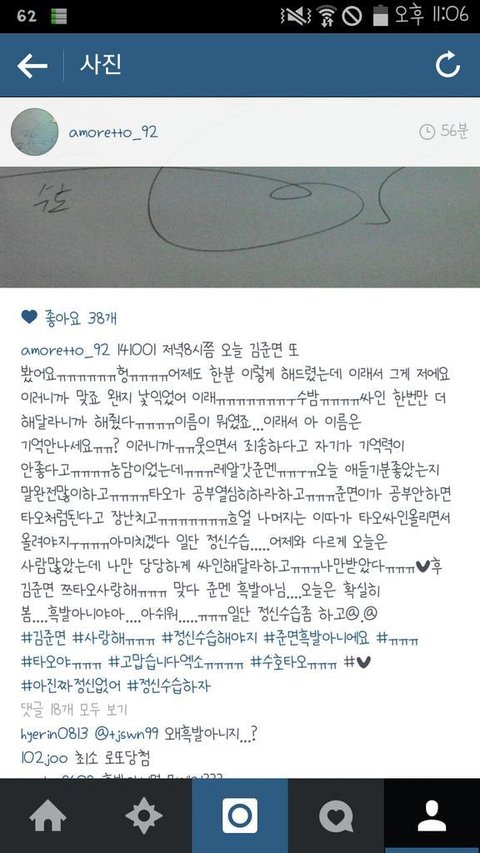 62 오후 11:06
사진
amoretto_92 56분
수호
좋아요 38개
amoretto_92 141001 저녁8시쯤 오늘 김준면 또
봤어요ㅠㅠㅠㅠㅠㅠ헝ㅠㅠㅠㅠ어제도 한분 이렇게 해드렸는데 이래서 그게 저에요
이러니까 맞죠 왠지 낯익었어 이래ㅠㅠㅠㅠㅠㅠㅜ수밤ㅠㅠㅠㅠ싸인 한번만 더
해달라니까 해줬다ㅠㅠㅠㅠ이름이 뭐였죠...이래서 아 이름은
기억안나세요ㅠㅠ? 이러니까ㅠㅠ웃으면서 죄송하다고 자기가 기억력이
안좋다고ㅠㅠㅠㅠ농담이었는데ㅠㅠㅠ레알갓준멘ㅠㅠㅜㅠ오늘 애들기분좋았는지
말완전많이하고ㅠㅠㅠㅠ타오가 공부열심히하라하고ㅠㅠㅠ준면이가 공부안하면
타오처럼된다고 장난치고ㅠㅠㅠㅠㅠㅠㅠ흐얼 나머지는 이따가 타오싸인올리면서
올려야지ㅜㅠㅠㅠ아미치겠다 일단 정신수습.....어제와 다르게 오늘은
사람많았는데 나만 당당하게 싸인해달라하고ㅠㅠㅠ나만받았다ㅠㅠㅠ♥후
김준면 쯔타오사랑해ㅠㅠㅠ 맞다 준멘 흑발아님....오늘은 확실히
봄....흑발아니야아....아쉬워.....ㅠㅠㅠ일단 정신수습좀 하고@.@
#김준면 #사랑해ㅠㅠㅠ #정신수습해야지 #준면흑발아니에요 #ㅠㅠㅠ
#타오야ㅠㅠㅠ #고맙습니다엑소ㅠㅠㅠㅠ #수호타오ㅠㅠㅠ #♥
#아진짜정신없어 #정신수습하자
댓글 18개 모두 보기
hyerin0813 @tjswn99 왜흑발아니지...?
102joo 최소 로또당첨